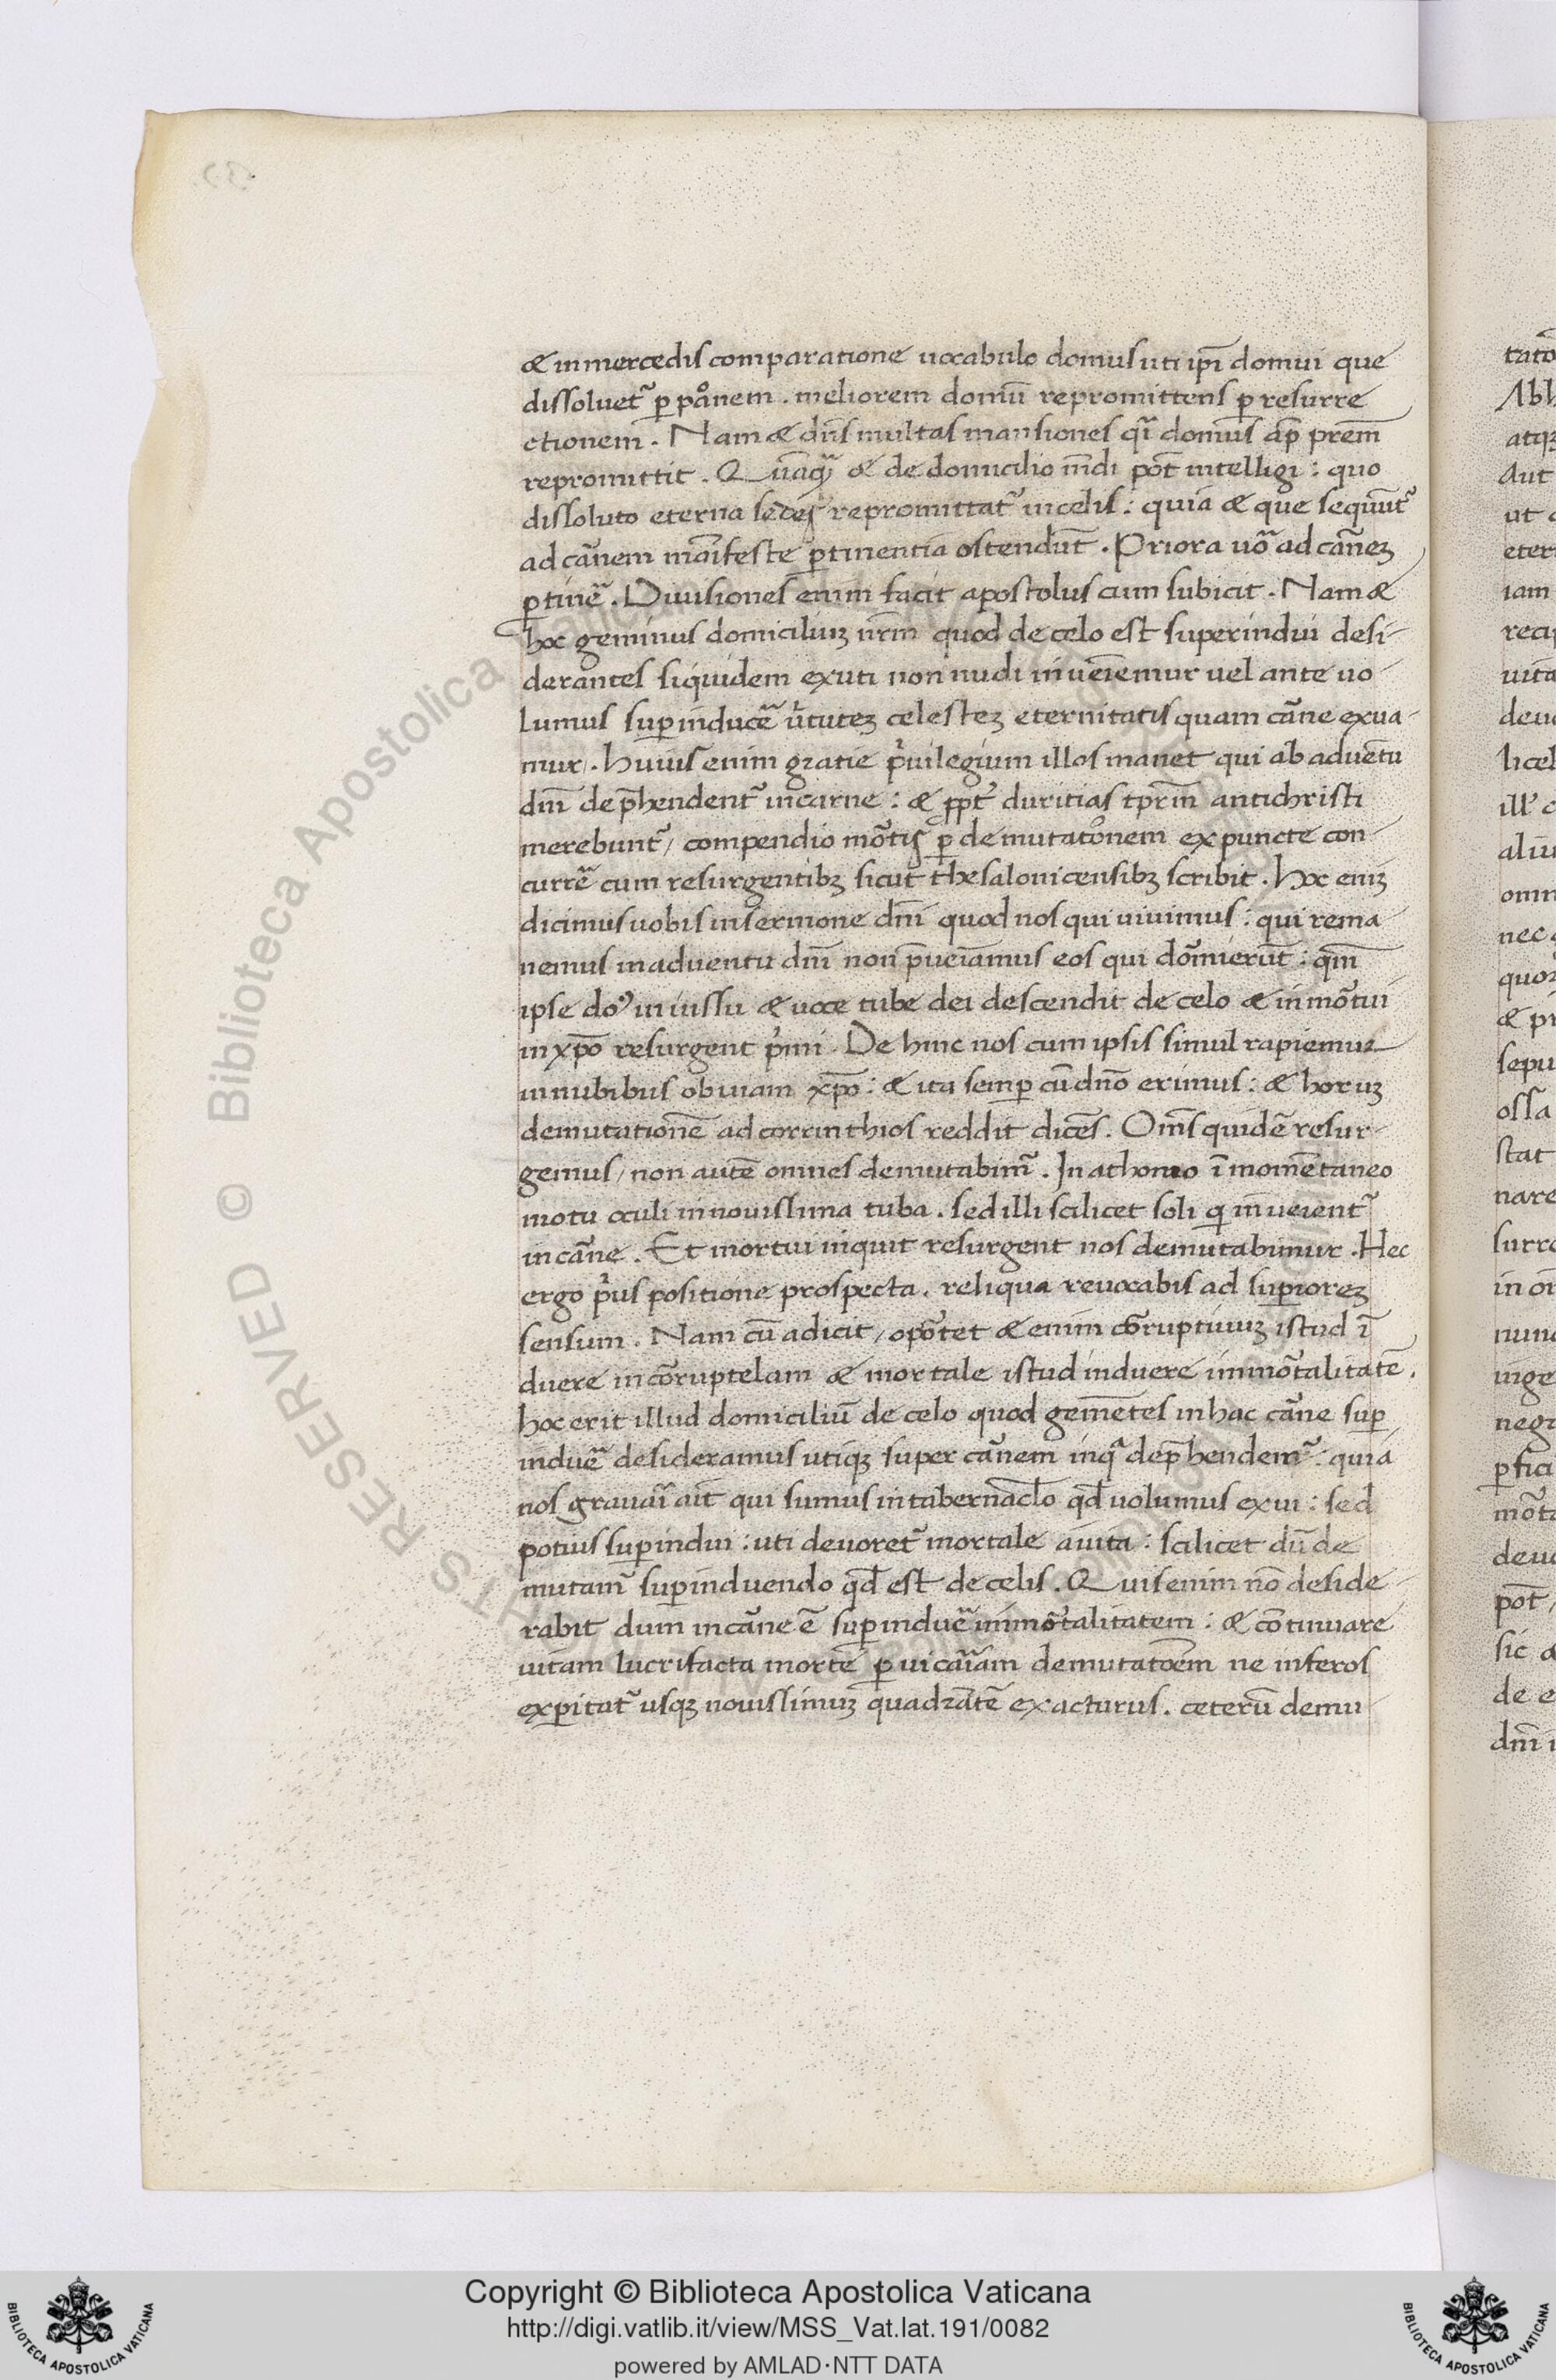 & in mercedis comparatione uocabulo domus uti ip̄i domui que
dissoluet᷑ ꝑ pẚnem . meliorem domū repromittens ꝑ resurre
ctionem . Nam & dn̄s multas mansiones qͣī domus ap̄ prēm
repromittit . & de domicilio mūdi pot̄ intelligi : quo
dissoluto eterna sedes repromittat᷑ in celis : quia & que sequūt᷑
ad cãnem mãifeste ꝑtinentia ostendūt . Priora uõ ad cãneꝫ
ꝑtinẽ . Diuisiones enim facit apostolus cum subicit . Nam &
hoc gemimus domiciliuꝫ nr̄m quod de celo est superindui desi-
derantes siquidem exuti non nudi inueīemur uel ante uo-
lumus suꝑinducẽ ũtuteꝫ celesteꝫ eternitatis quam cãne exua-
mur . huius enim gratie pͥuilegium illos manet qui ab aduētu
dn̄i dep̄hendent᷑ in carne : & ꝓpt᷑ duritias tpr̄m antichristi
merebunt᷑ / compendio mõtis ꝑ demutatōnem expuncte con-
currẽ cum resurgentibꝫ sicut thesalonicensibꝫ scribit . hoc eniꝫ
dicimus uobis in sermone dn̄i quod nos qui uiuimus : qui rema-
nemus in aduentu dn̄i non p̄ueīamus eos qui dõmierūt : qm̄
ipse do᷒ in iussu & uoce tube dei descendit de celo & in mõtui
in xp̄o resurgent pͥmi . De hinc nos cum ipsis simul rapiemur
in nubibus obuiam xp̄o : & ita semꝑ cū dn̄o erimus : & horuꝫ
demutationē ad corrinthios reddit dicēs . Om̄s quidē resur-
gemus / non autē omnes demutabim᷑ . In athomo ī momētaneo
motu oculi in nouissima tuba . sed illi scilicet soli q inueīent᷑
in cãne . Et mortui inquit resurgent nos demutabimur . Hec
ergo pͥus positione prospecta . reliqua reuocabis ad suꝑioreꝫ
sensum . Nam cū adicit / opõtet & enim cõruptiuuꝫ istud ī
duere incõruptelam & mortale istud induere immõtalitatē .
hoc erit illud domiciliū de celo quod gemētes in hac cãne suꝑ
induẽ desideramus utiqꝫ super cãnem inqͣ dep̄hendem᷑ : quia
nos grauaī ait qui sumus in tabernac̄lo qd̄ uolumus exui : sed
potius suꝑindui : uti deuoret᷑ mortale a uita : scilicet dū de
mutam᷑ suꝑinduendo qd̄ est de celis . Quis enim nō deside
rabit dum in cãne ē suꝑinduẽ immõtalitatem : & cōtinuare
uitam lucrifacta mortē ꝑ uicaīam demutatōem ne inferos
exꝑitat᷑ usqꝫ nouissimuꝫ quadrātē exacturus . ceterū demu
Copyright © Biblioteca Apostolica Vaticana
http://digi.vatlib.it/view/MSS_Vat.lat.191/0082
powered by AMLAD·NTT DATA
BIBLIOTECA APOSTOLICA VATICANA
BIBLIOTECA APOSTOLICA VATICANA